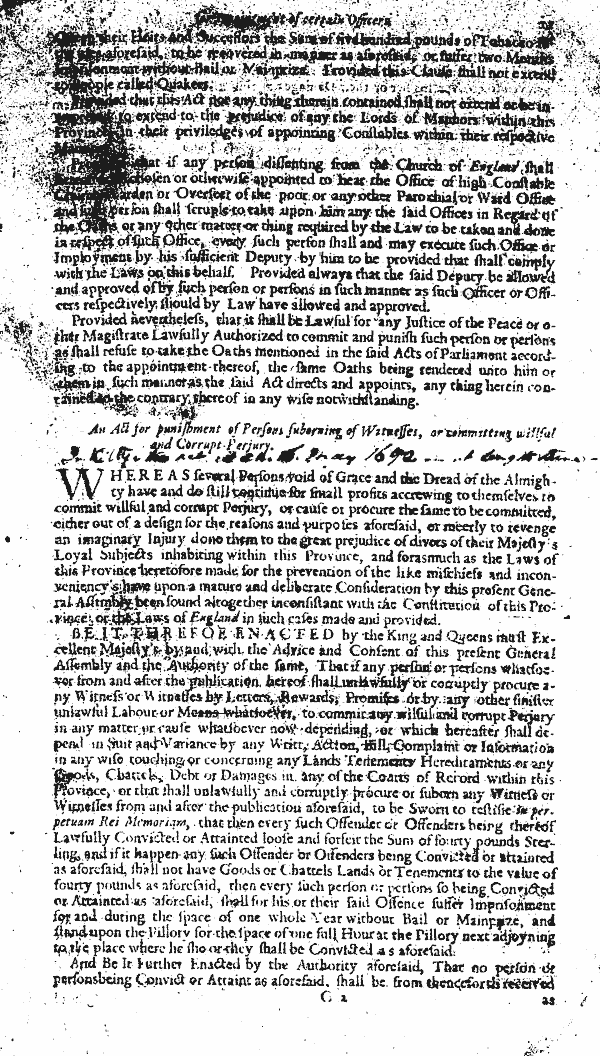 of certain Officers
their Heirs and Successors the Sum of five hundred pounds of Tobacco
aforesaid, to be recovered in manner as aforesaid, or suffer two Months
Imprisonment without Bail or Mainprize. Provided this Clause shall not extend
to people called Quakers.
Provided that this Act nor any thing therein contained shall not extend or be in-
to extend to the prejudice of any the Lords of Mannors within this
Province in their priviledges of appointing Constables within their respective
that if any person dissenting from the Church of England shall
chosen or otherwise appointed to bear the Office of high Constable
Warden or Overseer of the poor or any other Parochial or Ward Office
and such person shall scruple to take upon him any the said Offices in Regard of
the Oaths or any other matter or thing required by the Law to be taken and done
in respect of such Office, every such person shall and may execute such Office or
Imployment by his sufficient Deputy by him to be provided that shall comply
with the Laws on this behalf. Provided always that the said Deputy be allowed
and approved of by such person or persons in such manner as such Officer or Offi-
cers respectively should by Law have allowed and approved.
Provided nevertheless, that it shall be Lawful for any Justice of the Peace or o-
ther Magistrate Lawfully Authorized to commit and punish such person or persons
as shall refuse to take the Oaths mentioned in the said Acts of Parliament accord-
ing to the appointment thereof, the same Oaths being rendered unto him or
them in such manner as the said Act directs and appoints, any thing herein con-
tained to the contrary thereof in any wise notwithstanding.
An Act for punishment of Persons suborning of Witnesses, or committing willful
and Corrupt Perjury.
May 1692
WHEREAS several Persons void of Grace and the Dread of the Almigh-
ty have and do still continue for small profits accrewing to themselves to
commit willful and corrupt Perjury, or cause or procure the same to be committed,
either out of a design for the reasons and purposes aforesaid, or meerly to revenge
an imaginary Injury done them to the great prejudice of divers of their Majesty's
Loyal Subjects inhabiting within this Province, and forasmuch as the Laws of
this Province heretofore made for the prevention of the like mischiefs and incon-
veniency's have upon a mature and deliberate Consideration by this present Gene-
ral Assembly been found altogether inconsistant with the Constitution of this Pro-
vince, or the Laws of England in such cases made and provided.
BE IT THEREFORE ENACTED by the King and Queens most Ex-
cellent Majesty's by and with the Advice and Consent of this present General
Assembly and the Authority of the same, That if any person or persons whatsoe-
ver from and after the publication hereof shall unlawfully or corruptly procure a-
ny Witness or Witnesses by Letters, Rewards, Promises or by any other sinister
unlawful Labour or Means whatsoever, to commit any wilful and corrupt Perjury
in any matter or cause whatsoever now depending, or which hereafter shall de-
pend in Suit and Variance by any Writt, Action, Bill, Complaint or Information
in any wise touching or concerning any Lands Tenements Hereditaments or any
Goods, Chattels, Debt or Damages in any of the Courts of Record within this
Province, or that shall unlawfully and corruptly procure or suborn any Witness or
Witnesses from and after the publication aforesaid, to be Sworn to testifie in per-
petuam Rei Memoriam, that then every such Offender or Offenders being thereof
Lawfully Convicted or Attainted loose and forfeit the Sum of fourty pounds Ster-
ling, and if it happen any such Offender or Offenders being Convicted or attainted
as aforesaid, shall not have Goods or Chattels Lands or Tenements to the value of
fourty pounds as aforesaid, then every such person or persons so being Convicted
or Attainted as aforesaid, shall for his or their said Offence suffer Imprisonment
for and during the space of one whole Year without Bail or Mainprize, and
stand upon the Pillory for the space of one full Hour at the Pillory next adjoyning
to the place where he she or they shall be Convicted as aforesaid.
And Be It Further Enacted by the Authority aforesaid, That no person or
persons being Convict or Attaint as aforesaid, shall be from thenceforth received
C 2
as